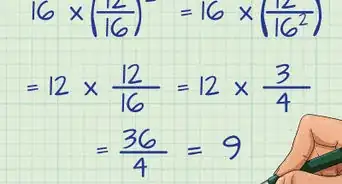 16 × (12/16)² = 16 × (12²/16²)
= 12 × 12/16 = 12 × 3/4
= 36/4 = 9